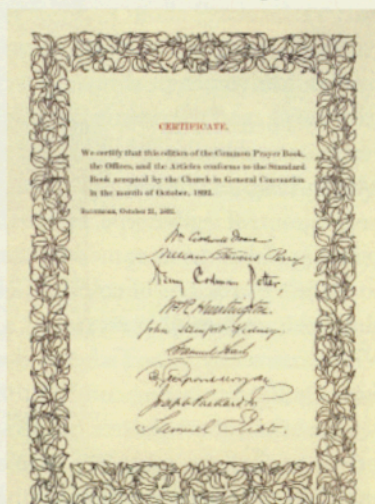 CERTIFICATE.
We certify that this edition of the Common Prayer Book,
the Offices, and the Articles conforms to the Standard
Book accepted by the Church in General Convention
in the month of October, 1892.
October 1892.
Wm Croswell Doane
William Stevens Perry
Henry Codman Potter,
W. R. Huntington.
Samuel Hart
J. Pierpont Morgan
Joseph Packard Jr
Samuel Eliot.